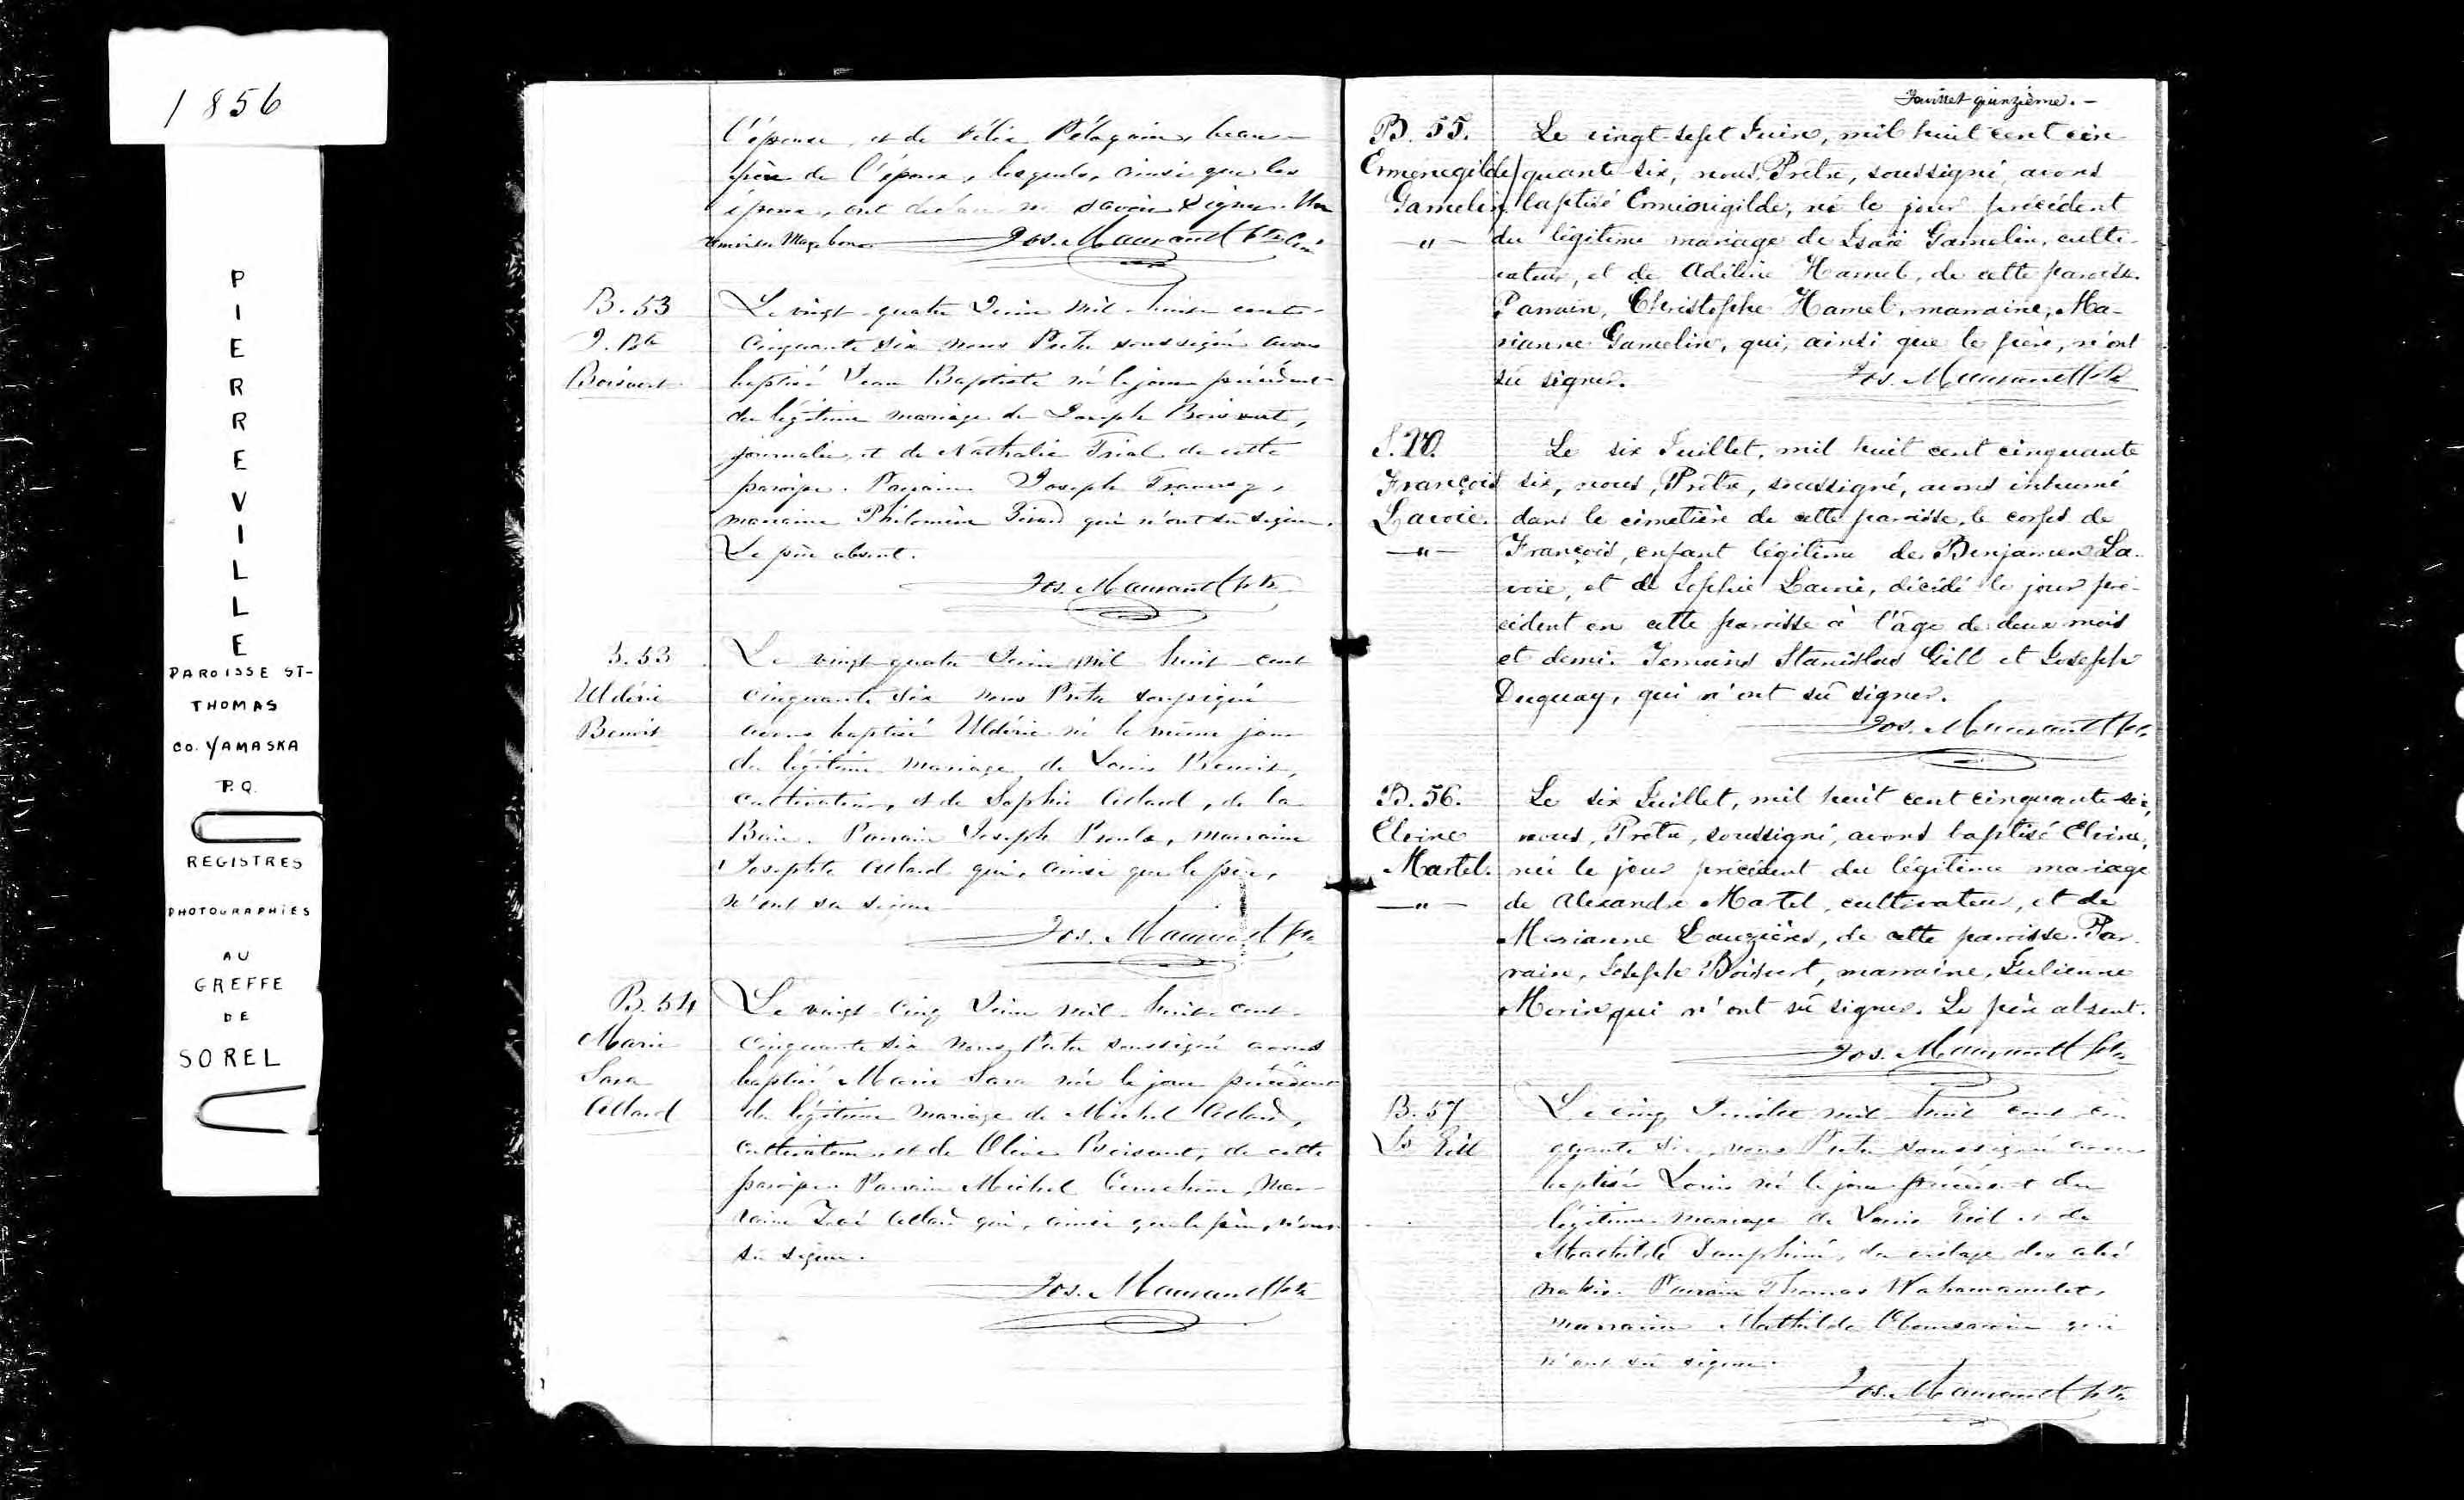 1856
P
I
E
R
R
E
V
I
L
L
E
PAROISSE ST-
THOMAS
CO. YAMASKA
P.Q.
REGISTRES
PHOTOGRAPHIES
AU
GREFFE
DE
SOREL
l'épouse, et de Félix Péloquin, beau-
père de l'époux, lesquels, ainsi que les
époux, ont déclaré ne savoir signer. Un
Jos. Maurault Ptre Curé
B. 53
J. Bte
Boisvert
Le vingt-quatre Juin mil-huit-cent-
cinquante six nous Prêtre soussigné avons
baptisé Jean Baptiste né le jour précédent
du légitime mariage de Joseph Boisvert,
journalier, et de Nathalie de cette
paroisse. Parrain Joseph
marraine Philomène qui n'ont su signer.
Le père absent.
Jos. Maurault Ptre
B. 53
Uldéric
Benoit
Le vingt-quatre Juin mil huit-cent
cinquante six nous Prêtre soussigné
avons baptisé Uldéric né le même jour
du légitime mariage de Louis Benoit,
cultivateur, et de Sophie Allard, de la
Baie. Parrain Joseph Proulx, marraine
Josephte Allard qui, ainsi que le père,
n'ont su signer
Jos. Maurault Ptre
B. 54
Marie
Sara
Allard
Le vingt-cinq Juin mil-huit-cent-
cinquante six nous Prêtre soussigné avons
baptisé Marie Sara née le jour précédent
du légitime mariage de Michel Allard,
cultivateur, et de Olive Boisvert, de cette
paroisse. Parrain Michel mar-
raine Zoé Allard qui, ainsi que le père, n'ont
su signer.
Jos. Maurault Ptre
Feuillet quinzième. -
B. 55.
Erménegilde
Gamelin
-"-
Le vingt-sept Juin, mil huit cent cin
quante-six, nous, Prêtre, soussigné, avons
baptisé Erménigilde, né le jour précédent
du légitime mariage de Isaïe Gamelin, culti-
vateur, et de Adéline Hamel, de cette paroisse.
Parrain, Christophe Hamel, marraine, Ma-
rianne Gamelin, qui, ainsi que le père, n'ont
sû signer.
Jos. Maurault Ptre
François
Lavoie.
-"-
Le six Juillet, mil huit cent cinquante
six, nous, Prêtre, soussigné, avons inhumé
dans le cimetière de cette paroisse, le corps de
François, enfant légitime de Benjamin La-
voie, et de Sophie décédé le jour pré-
cédent en cette paroisse à l'âge de deux mois
et demi. Temoins Stanislas Gill et Joseph
Duguay, qui n'ont sû signer.
Jos. Maurault Ptre
B. 56.
Elvine
Martel.
-"-
Le six Juillet, mil huit cent cinquante-six,
nous, Prêtre, soussigné, avons baptisé Elvine,
née le jour précédent du légitime mariage
de Alexandre Martel, cultivateur, et de
Marianne Lauzière, de cette paroisse. Par-
rain, Joseph Boisvert, marraine, Julienne
Morin, qui n'ont sû signer. Le père absent.
Jos. Maurault Ptre
B. 57
Ls Gill
Le cinq Juillet mil huit cent cin
quante six, nous Prêtre soussigné avons
baptisé Louis né le jour précédent du
légitime mariage de Louis Gill et de
Mathilde Dauphiné, du village des abé
nakis. Parrain Thomas
marraine Mathilde qui
n'ont su signer.
Jos. Maurault Ptre